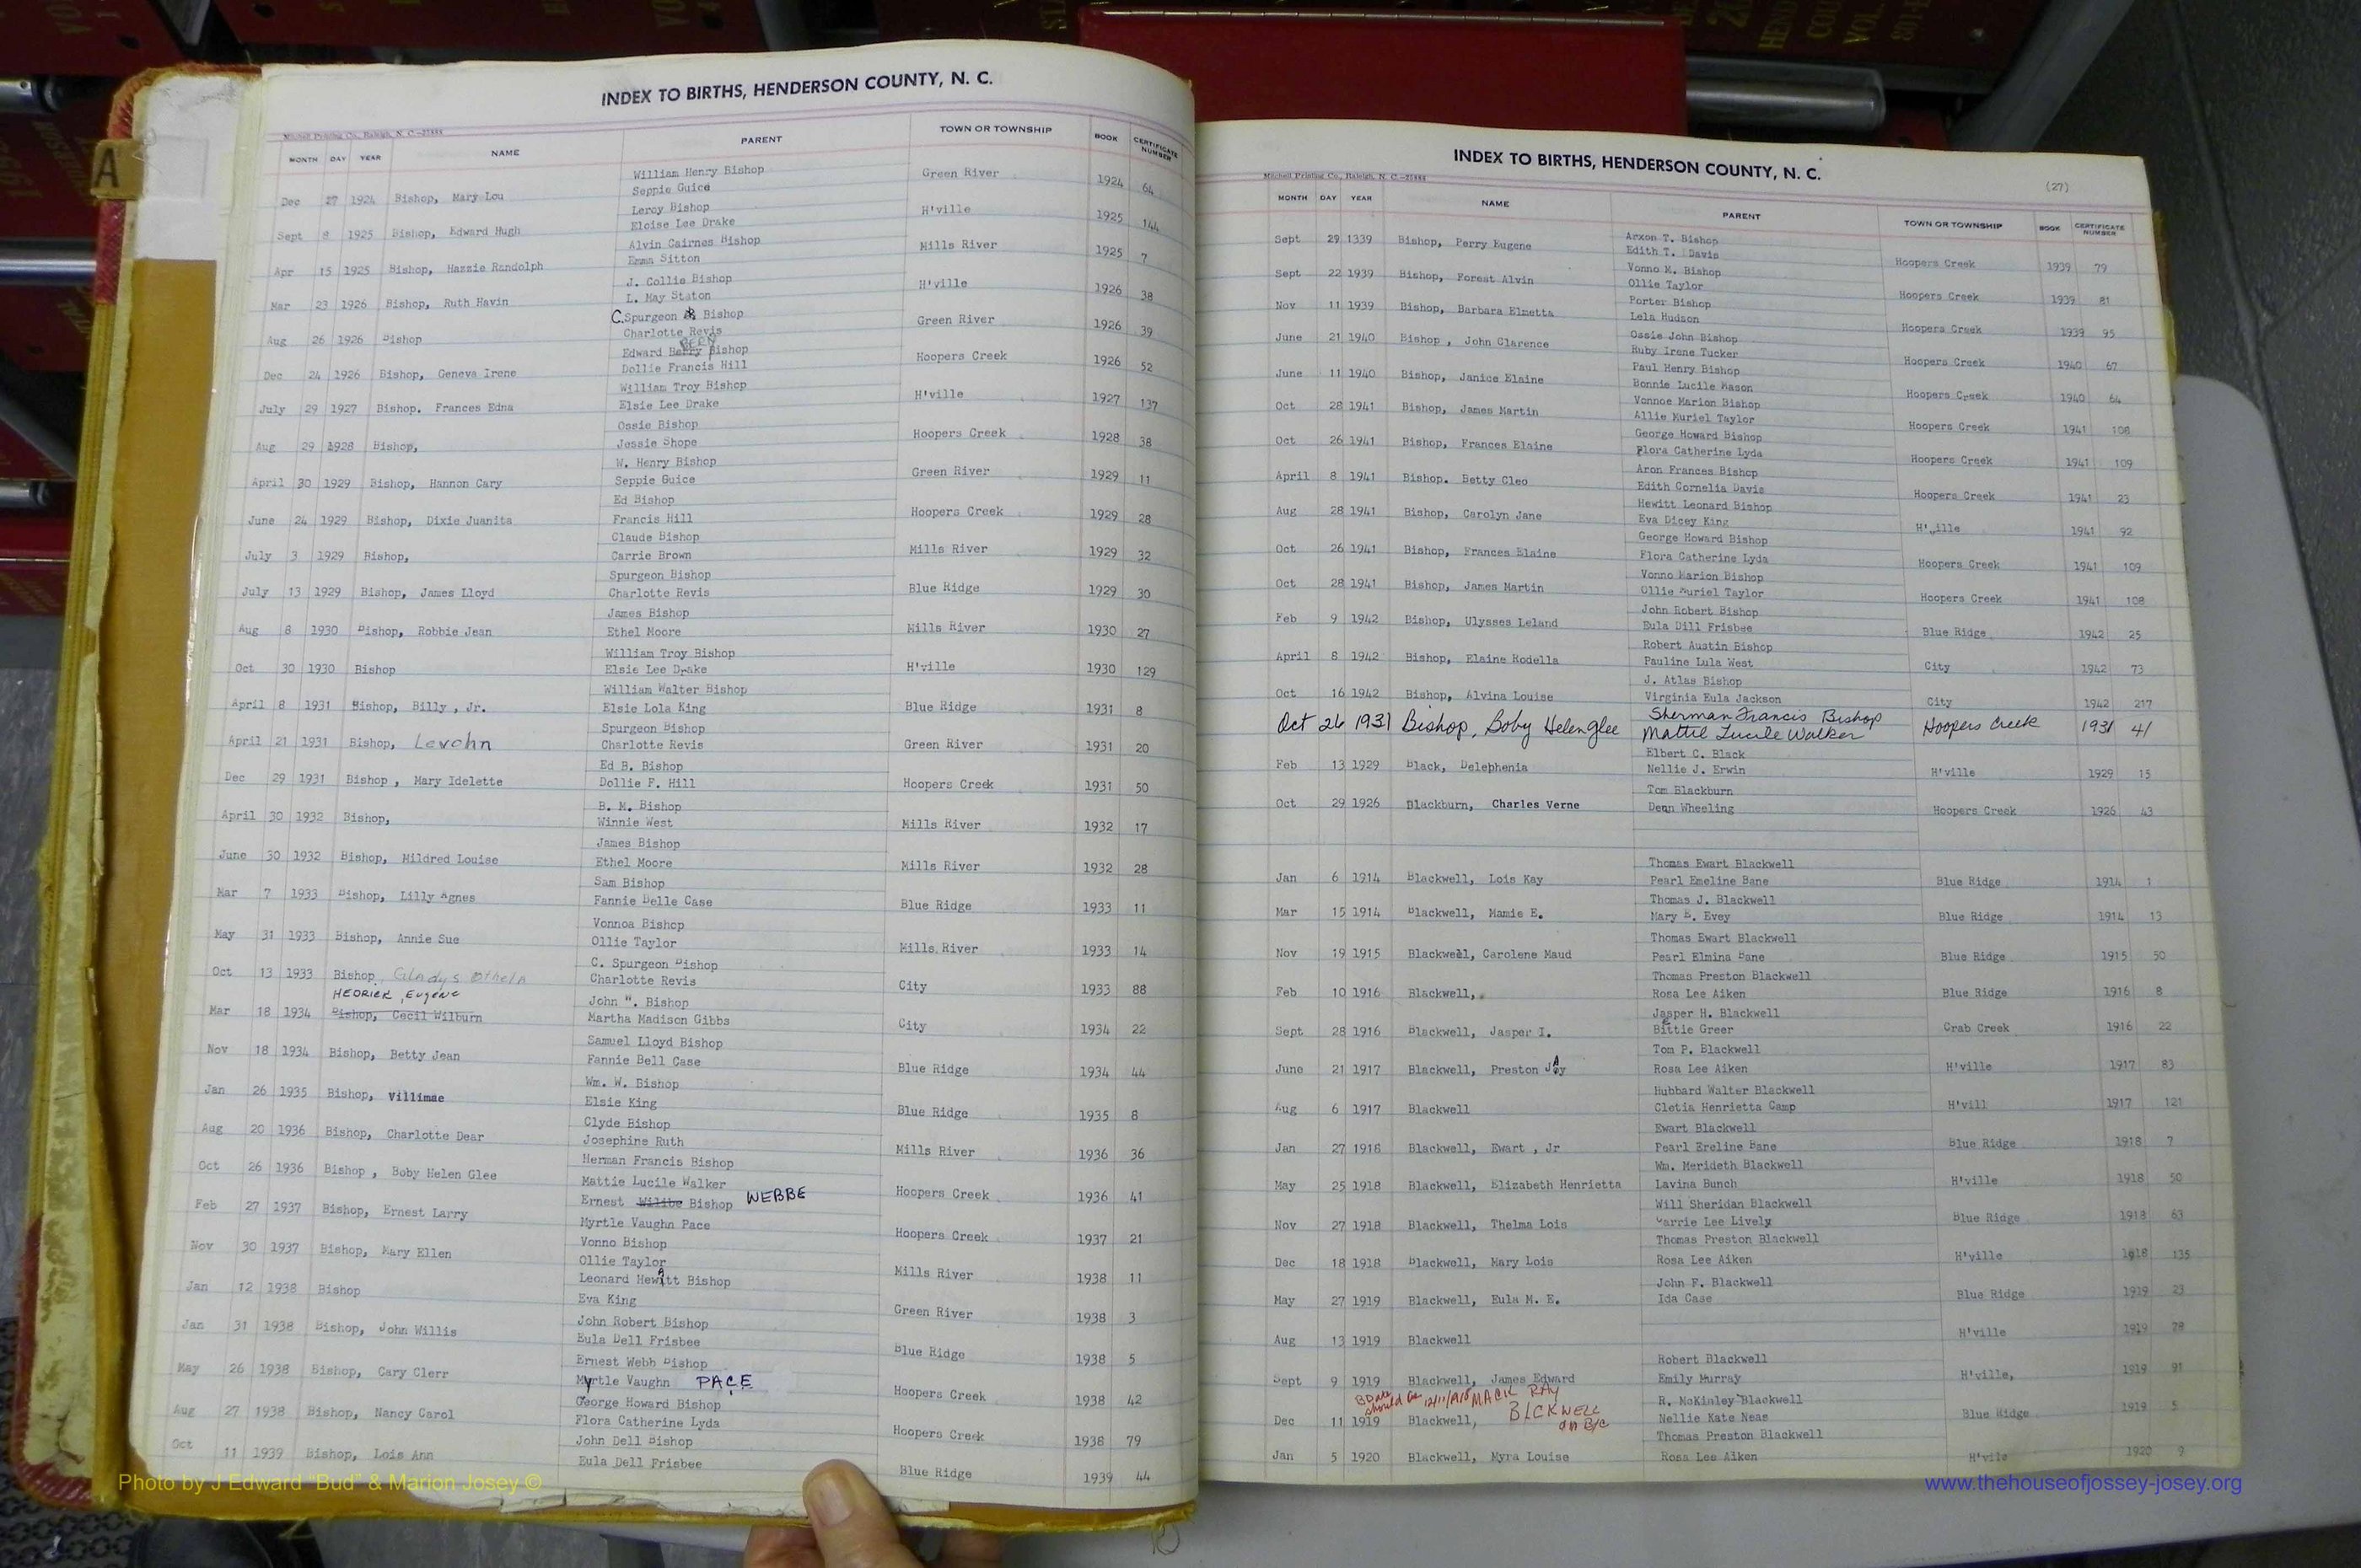 INDEX TO BIRTHS, HENDERSON COUNTY, N. C.
Mitchell Printing Co., Raleigh, N. C.—25888
MONTH DAY YEAR NAME PARENT TOWN OR TOWNSHIP BOOK CERTIFICATE NUMBER
William Henry Bishop
Dec 27 1924 Bishop, Mary Lou Seppie Guice Green River 1924 64
Leroy Bishop
Sept 8 1925 Bishop, Edward Hugh Eloise Lee Drake H'ville 1925 144
Alvin Cairnes Bishop
Apr 15 1925 Bishop, Hazzie Randolph Emma Sitton Mills River 1925 7
J. Collie Bishop
Mar 23 1926 Bishop, Ruth Havin L. May Staton H'ville 1926 38
C. Spurgeon Bishop
Aug 26 1926 Bishop Charlotte Revis Green River 1926 39
Edward Berry Bishop
Dec 24 1926 Bishop, Geneva Irene Dollie Francis Hill Hoopers Creek 1926 52
William Troy Bishop
July 29 1927 Bishop. Frances Edna Elsie Lee Drake H'ville 1927 137
Ossie Bishop
Aug 29 1928 Bishop, Jessie Shope Hoopers Creek 1928 38
W. Henry Bishop
April 30 1929 Bishop, Hannon Cary Seppie Guice Green River 1929 11
Ed Bishop
June 24 1929 Bishop, Dixie Juanita Francis Hill Hoopers Creek 1929 28
Claude Bishop
July 3 1929 Bishop, Carrie Brown Mills River 1929 32
Spurgeon Bishop
July 13 1929 Bishop, James Lloyd Charlotte Revis Blue Ridge 1929 30
James Bishop
Aug 8 1930 Bishop, Robbie Jean Ethel Moore Mills River 1930 27
William Troy Bishop
Oct 30 1930 Bishop Elsie Lee Drake H'ville 1930 129
William Walter Bishop
April 8 1931 Bishop, Billy , Jr. Elsie Lola King Blue Ridge 1931 8
Spurgeon Bishop
April 21 1931 Bishop, Levohn Charlotte Revis Green River 1931 20
Ed B. Bishop
Dec 29 1931 Bishop , Mary Idelette Dollie F. Hill Hoopers Creek 1931 50
B. M. Bishop
April 30 1932 Bishop, Winnie West Mills River 1932 17
James Bishop
June 30 1932 Bishop, Mildred Louise Ethel Moore Mills River 1932 28
Sam Bishop
Mar 7 1933 Bishop, Lilly Agnes Fannie Belle Case Blue Ridge 1933 11
Vonnoa Bishop
May 31 1933 Bishop, Annie Sue Ollie Taylor Mills River 1933 14
C. Spurgeon Bishop
Oct 13 1933 Bishop Gladys Charlotte Revis City 1933 88
HEDRICK, Eugene John W. Bishop
Mar 18 1934 Bishop, Cecil Wilburn Martha Madison Gibbs City 1934 22
Samuel Lloyd Bishop
Nov 18 1934 Bishop, Betty Jean Fannie Bell Case Blue Ridge 1934 44
Wm. W. Bishop
Jan 26 1935 Bishop, Villimae Elsie King Blue Ridge 1935 8
Clyde Bishop
Aug 20 1936 Bishop, Charlotte Dear Josephine Ruth Mills River 1936 36
Herman Francis Bishop
Oct 26 1936 Bishop , Boby Helen Glee Mattie Lucile Walker Hoopers Creek 1936 41
Ernest Wilibe Bishop WEBBE
Feb 27 1937 Bishop, Ernest Larry Myrtle Vaughn Pace Hoopers Creek 1937 21
Vonno Bishop
Nov 30 1937 Bishop, Mary Ellen Ollie Taylor Mills River 1938 11
Leonard Hewitt Bishop
Jan 12 1938 Bishop Eva King Green River 1938 3
John Robert Bishop
Jan 31 1938 Bishop, John Willis Eula Dell Frisbee Blue Ridge 1938 5
Ernest Webb Bishop
May 26 1938 Bishop, Cary Clerr Myrtle Vaughn PACE Hoopers Creek 1938 42
George Howard Bishop
Aug 27 1938 Bishop, Nancy Carol Flora Catherine Lyda Hoopers Creek 1938 79
John Dell Bishop
Oct 11 1939 Bishop, Lois Ann Eula Dell Frisbee Blue Ridge 1939 44
INDEX TO BIRTHS, HENDERSON COUNTY, N. C.
Mitchell Printing Co., Raleigh, N. C.—25888 (27)
MONTH DAY YEAR NAME PARENT TOWN OR TOWNSHIP BOOK CERTIFICATE NUMBER
Arxon T. Bishop
Sept 29 1339 Bishop, Perry Eugene Edith T. Davis Hoopers Creek 1939 79
Vonno M. Bishop
Sept 22 1939 Bishop, Forest Alvin Ollie Taylor Hoopers Creek 1939 81
Porter Bishop
Nov 11 1939 Bishop, Barbara Elmetta Lela Hudson Hoopers Creek 1939 95
Ossie John Bishop
June 21 1940 Bishop , John Clarence Ruby Irene Tucker Hoopers Creek 1940 67
Paul Henry Bishop
June 11 1940 Bishop, Janice Elaine Bonnie Lucile Mason Hoopers Creek 1940 64
Vonnoe Marion Bishop
Oct 28 1941 Bishop, James Martin Allie Muriel Taylor Hoopers Creek 1941 108
George Howard Bishop
Oct 26 1941 Bishop, Frances Elaine Flora Catherine Lyda Hoopers Creek 1941 109
Aron Frances Bishop
April 8 1941 Bishop. Betty Cleo Edith Cornelia Davis Hoopers Creek 1941 23
Hewitt Leonard Bishop
Aug 28 1941 Bishop, Carolyn Jane Eva Dicey King H'ville 1941 92
George Howard Bishop
Oct 26 1941 Bishop, Frances Elaine Flora Catherine Lyda Hoopers Creek 1941 109
Vonno Marion Bishop
Oct 28 1941 Bishop, James Martin Ollie Muriel Taylor Hoopers Creek 1941 108
John Robert Bishop
Feb 9 1942 Bishop, Ulysses Leland Eula Dill Frisbee Blue Ridge 1942 25
Robert Austin Bishop
April 8 1942 Bishop, Elaine Rodella Pauline Lula West City 1942 73
J. Atlas Bishop
Oct 16 1942 Bishop, Alvina Louise Virginia Eula Jackson City 1942 217
Sherman Francis Bishop
Oct 26 1931 Bishop, Boby Helen Glee Mattie Lucile Walker Hoopers Creek 1931 41
Elbert C. Black
Feb 13 1929 Black, Delephenia Nellie J. Erwin H'ville 1929 15
Tom Blackburn
Oct 29 1926 Blackburn, Charles Verne Denn Wheeling Hoopers Creek 1926 43
Thomas Ewart Blackwell
Jan 6 1914 Blackwell, Lois Kay Pearl Emeline Bane Blue Ridge 1914 1
Thomas J. Blackwell
Mar 15 1914 Blackwell, Mamie E. Mary B. Evey Blue Ridge 1914 13
Thomas Ewart Blackwell
Nov 19 1915 Blackwell, Carolene Maud Pearl Elmina Bane Blue Ridge 1915 50
Thomas Preston Blackwell
Feb 10 1916 Blackwell, Rosa Lee Aiken Blue Ridge 1916 8
Jasper H. Blackwell
Sept 28 1916 Blackwell, Jasper I. Bittie Greer Crab Creek 1916 22
Tom P. Blackwell
June 21 1917 Blackwell, Preston Jay Rosa Lee Aiken H'ville 1917 83
Hubbard Walter Blackwell
Aug 6 1917 Blackwell Cletia Henrietta Camp H'vill 1917 121
Ewart Blackwell
Jan 27 1918 Blackwell, Ewart , Jr Pearl Ercline Bane Blue Ridge 1918 7
Wm. Merideth Blackwell
May 25 1918 Blackwell, Elizabeth Henrietta Lavina Bunch H'ville 1918 50
Will Sheridan Blackwell
Nov 27 1918 Blackwell, Thelma Lois Carrie Lee Lively Blue Ridge 1918 63
Thomas Preston Blackwell
Dec 18 1918 Blackwell, Mary Lois Rosa Lee Aiken H'ville 1918 135
John F. Blackwell
May 27 1919 Blackwell, Eula M. E. Ida Case Blue Ridge 1919 23
Aug 13 1919 Blackwell H'ville 1919 78
Robert Blackwell
Sept 9 1919 Blackwell, James Edward Emily Murray H'ville, 1919 91
BDate should be 12/11/1918 MACK RAY R. McKinley Blackwell
Dec 11 1919 Blackwell, BLCKWELL on B/C Nellie Kate Neas Blue Ridge 1919 5
Thomas Preston Blackwell
Jan 5 1920 Blackwell, Myra Louise Rosa Lee Aiken H'vile 1920 9
Photo by J Edward "Bud" & Marion Josey ©
www.thehouseofjossey-josey.org